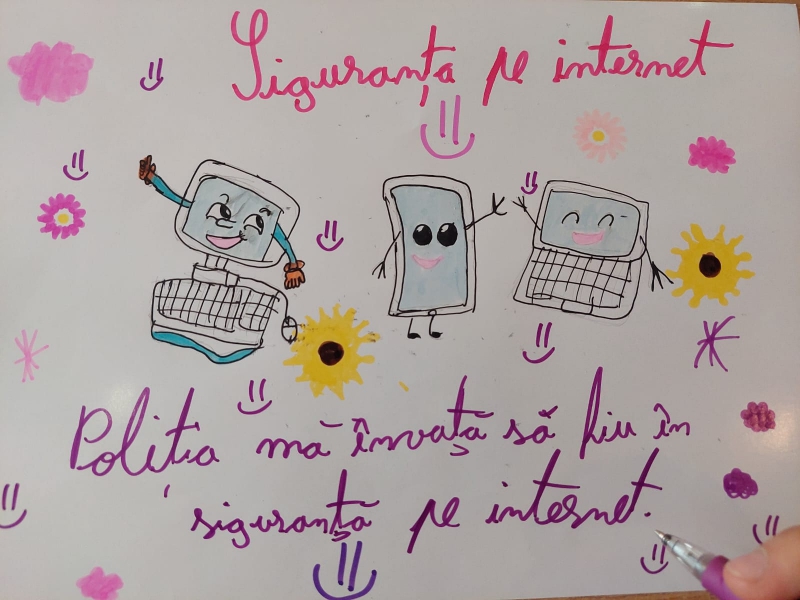 Siguranța pe internet
Poliția mă învață să fiu în
siguranță pe internet.